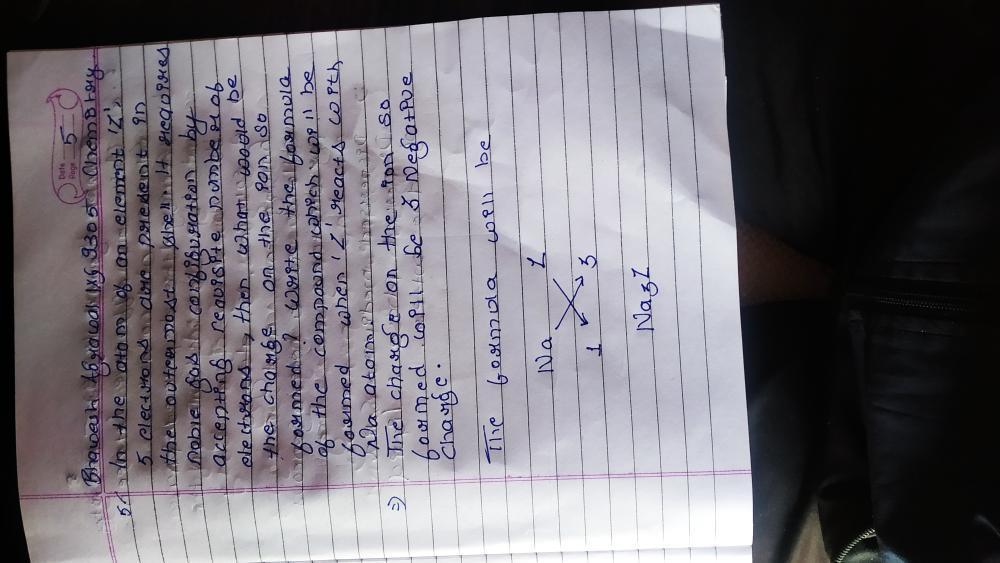 Date
Page 5
Bhavesh Agrawal Chemistry
5. In the atom of an element 'Z',
5 electrons are present in
the outermost shell. It requires
noble gas configuration by
accenting requisite number of
electrons, then what would be
the charge on the ion so
formed? write the formula
of the compound which will be
formed when 'Z' reacts with
Na atom
=) The charge on the ion so
formed will be 3 Negative
charge.
The formula will be
Na Z
1 3
Na3Z